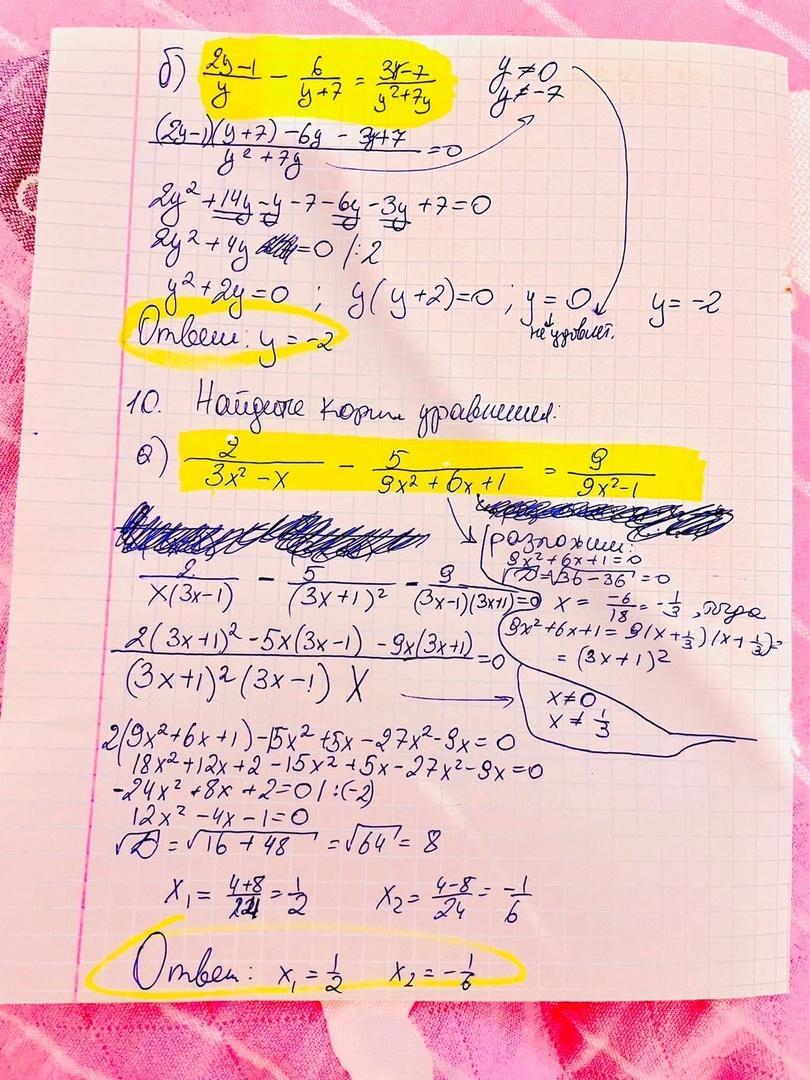 б) (2y-1)/y - 6/(y+7) = (3y-7)/(y²+7y) y ≠ 0
y ≠ -7
((2y-1)(y+7) - 6y - 3y+7)/(y² + 7y) = 0
2y² + 14y - y - 7 - 6y - 3y + 7 = 0
2y² + 4y = 0 /:2
y² + 2y = 0 ; y(y+2) = 0 ; y = 0 y = -2
не удовлет.
Ответ: y = -2
10. Найдите корни уравнения:
а) 2/(3x² - x) - 5/(9x² + 6x + 1) = 9/(9x²-1)
разложим:
9x² + 6x + 1 = 0
√D = √36 - 36 = 0
x = -6/18 = -1/3, тогда
9x² + 6x + 1 = 9(x + 1/3)(x + 1/3) =
= (3x + 1)²
2/(x(3x-1)) - 5/(3x+1)² - 9/((3x-1)(3x+1)) = 0
(2(3x+1)² - 5x(3x-1) - 9x(3x+1))/((3x+1)² (3x-1) x) = 0
x ≠ 0
x ≠ 1/3
2(9x² + 6x + 1) - 15x² + 5x - 27x² - 9x = 0
18x² + 12x + 2 - 15x² + 5x - 27x² - 9x = 0
-24x² + 8x + 2 = 0 /:(-2)
12x² - 4x - 1 = 0
√D = √16 + 48 = √64 = 8
x₁ = (4+8)/24 = 1/2 x₂ = (4-8)/24 = -1/6
Ответ: x₁ = 1/2 x₂ = -1/6